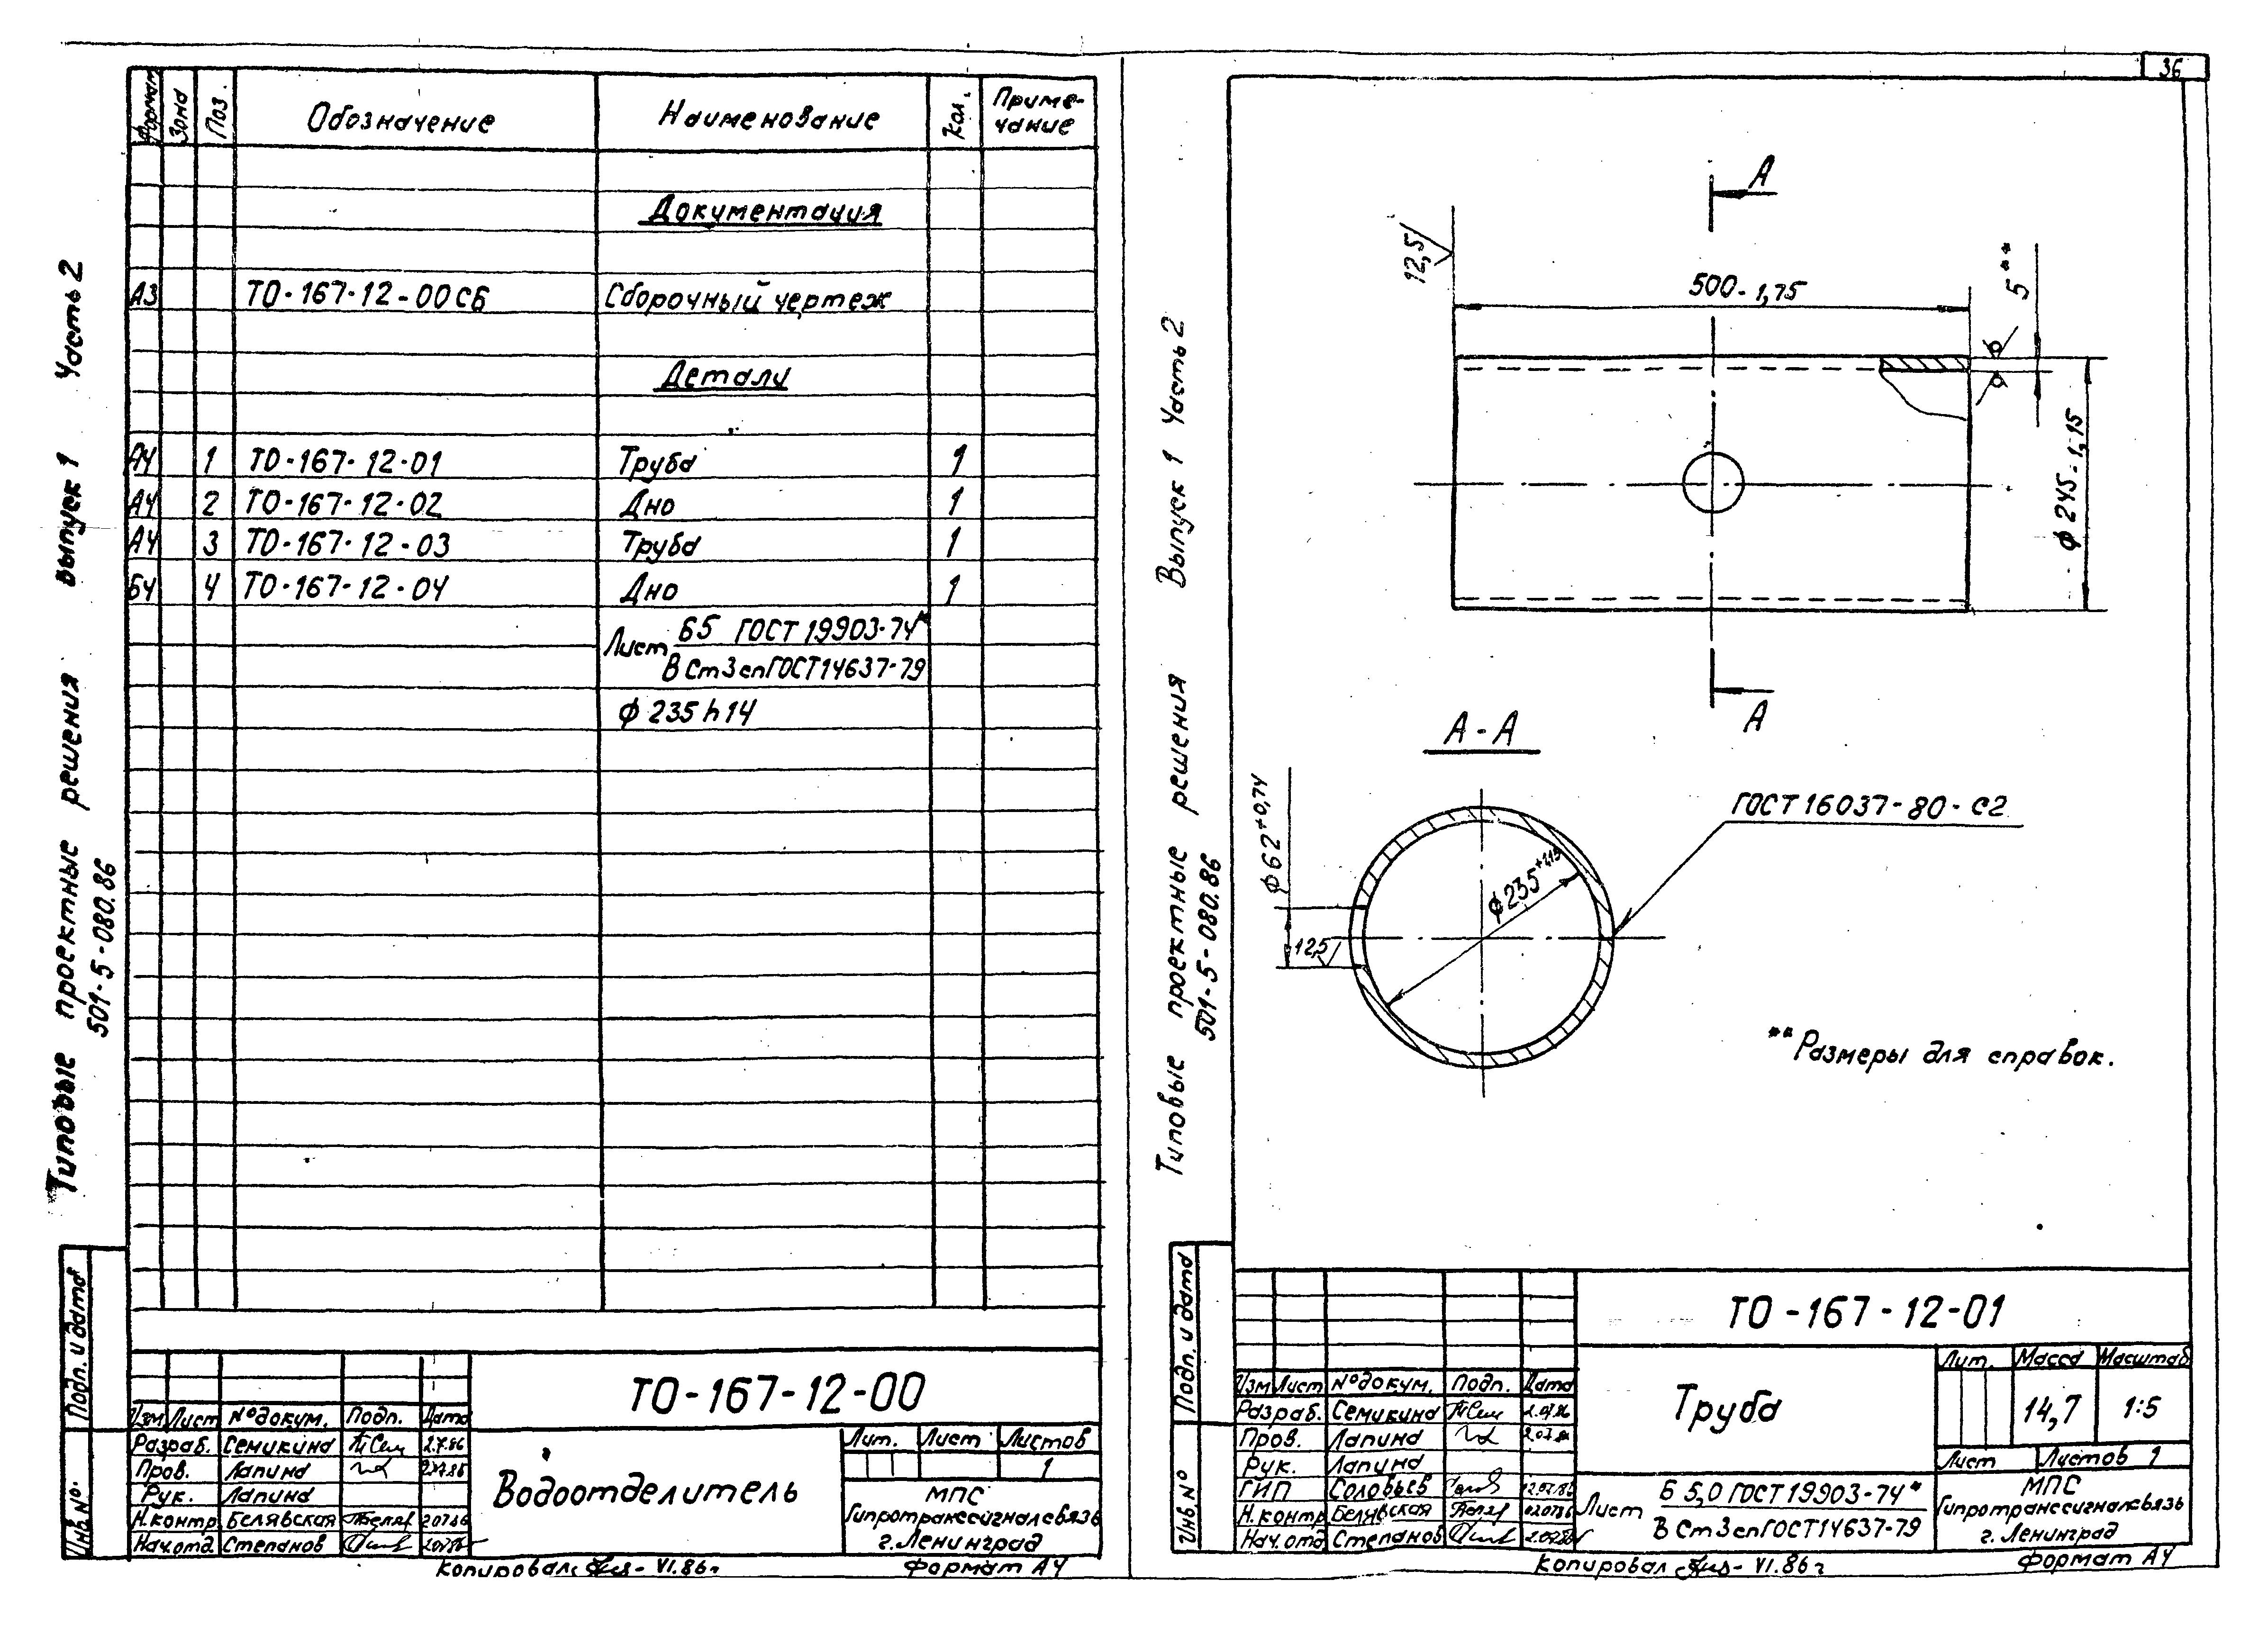 36
Типовые проектные решения выпуск 1 Часть 2
501-5-080.86
Формат Зона Поз. Обозначение Наименование Кол. Приме-
чание
Документация
А3 ТО-167-12-00СБ Сборочный чертеж
Детали
А4 1 ТО-167-12-01 Труба 1
А4 2 ТО-167-12-02 Дно 1
А4 3 ТО-167-12-03 Труба 1
Б4 4 ТО-167-12-04 Дно 1
Лист Б5 ГОСТ 19903-74*
ВСт3спГОСТ14637-79
ϕ 235 h14
Подп. и дата
Инв. №
ТО-167-12-00
Изм Лист № докум. Подп. Дата
Разраб. Семикина 2.7.86
Пров. Лапина
Рук. Лапина
Н.контр Белявская 2.07.86
Нач.отд Степанов
Водоотделитель
Лит. Лист Листов
1
МПС
Гипротранссигналсвязь
г.Ленинград
Копировал VI.86г
Формат А4
Типовые проектные решения Выпуск 1 Часть 2
501-5-080.86
А
12,5
500-1,75
5**
ϕ 245-1,15
А
А-А
ϕ62+0,74
ГОСТ 16037-80-С2
ϕ235+1,15
12,5
**Размеры для справок.
Подп. и дата
Инв. №
ТО-167-12-01
Изм Лист № докум. Подп. Дата
Разраб. Семикина 2.07.86
Пров. Лапина
Рук. Лапина
ГИП Соловьев
Н.контр Белявская
Нач.отд Степанов
Труба
Лит. Масса Масштаб
14,7 1:5
Лист Листов 1
Лист Б 5,0 ГОСТ 19903-74*
ВСт3спГОСТ14637-79
МПС
Гипротранссигналсвязь
г.Ленинград
Копировал VI.86г
Формат А4